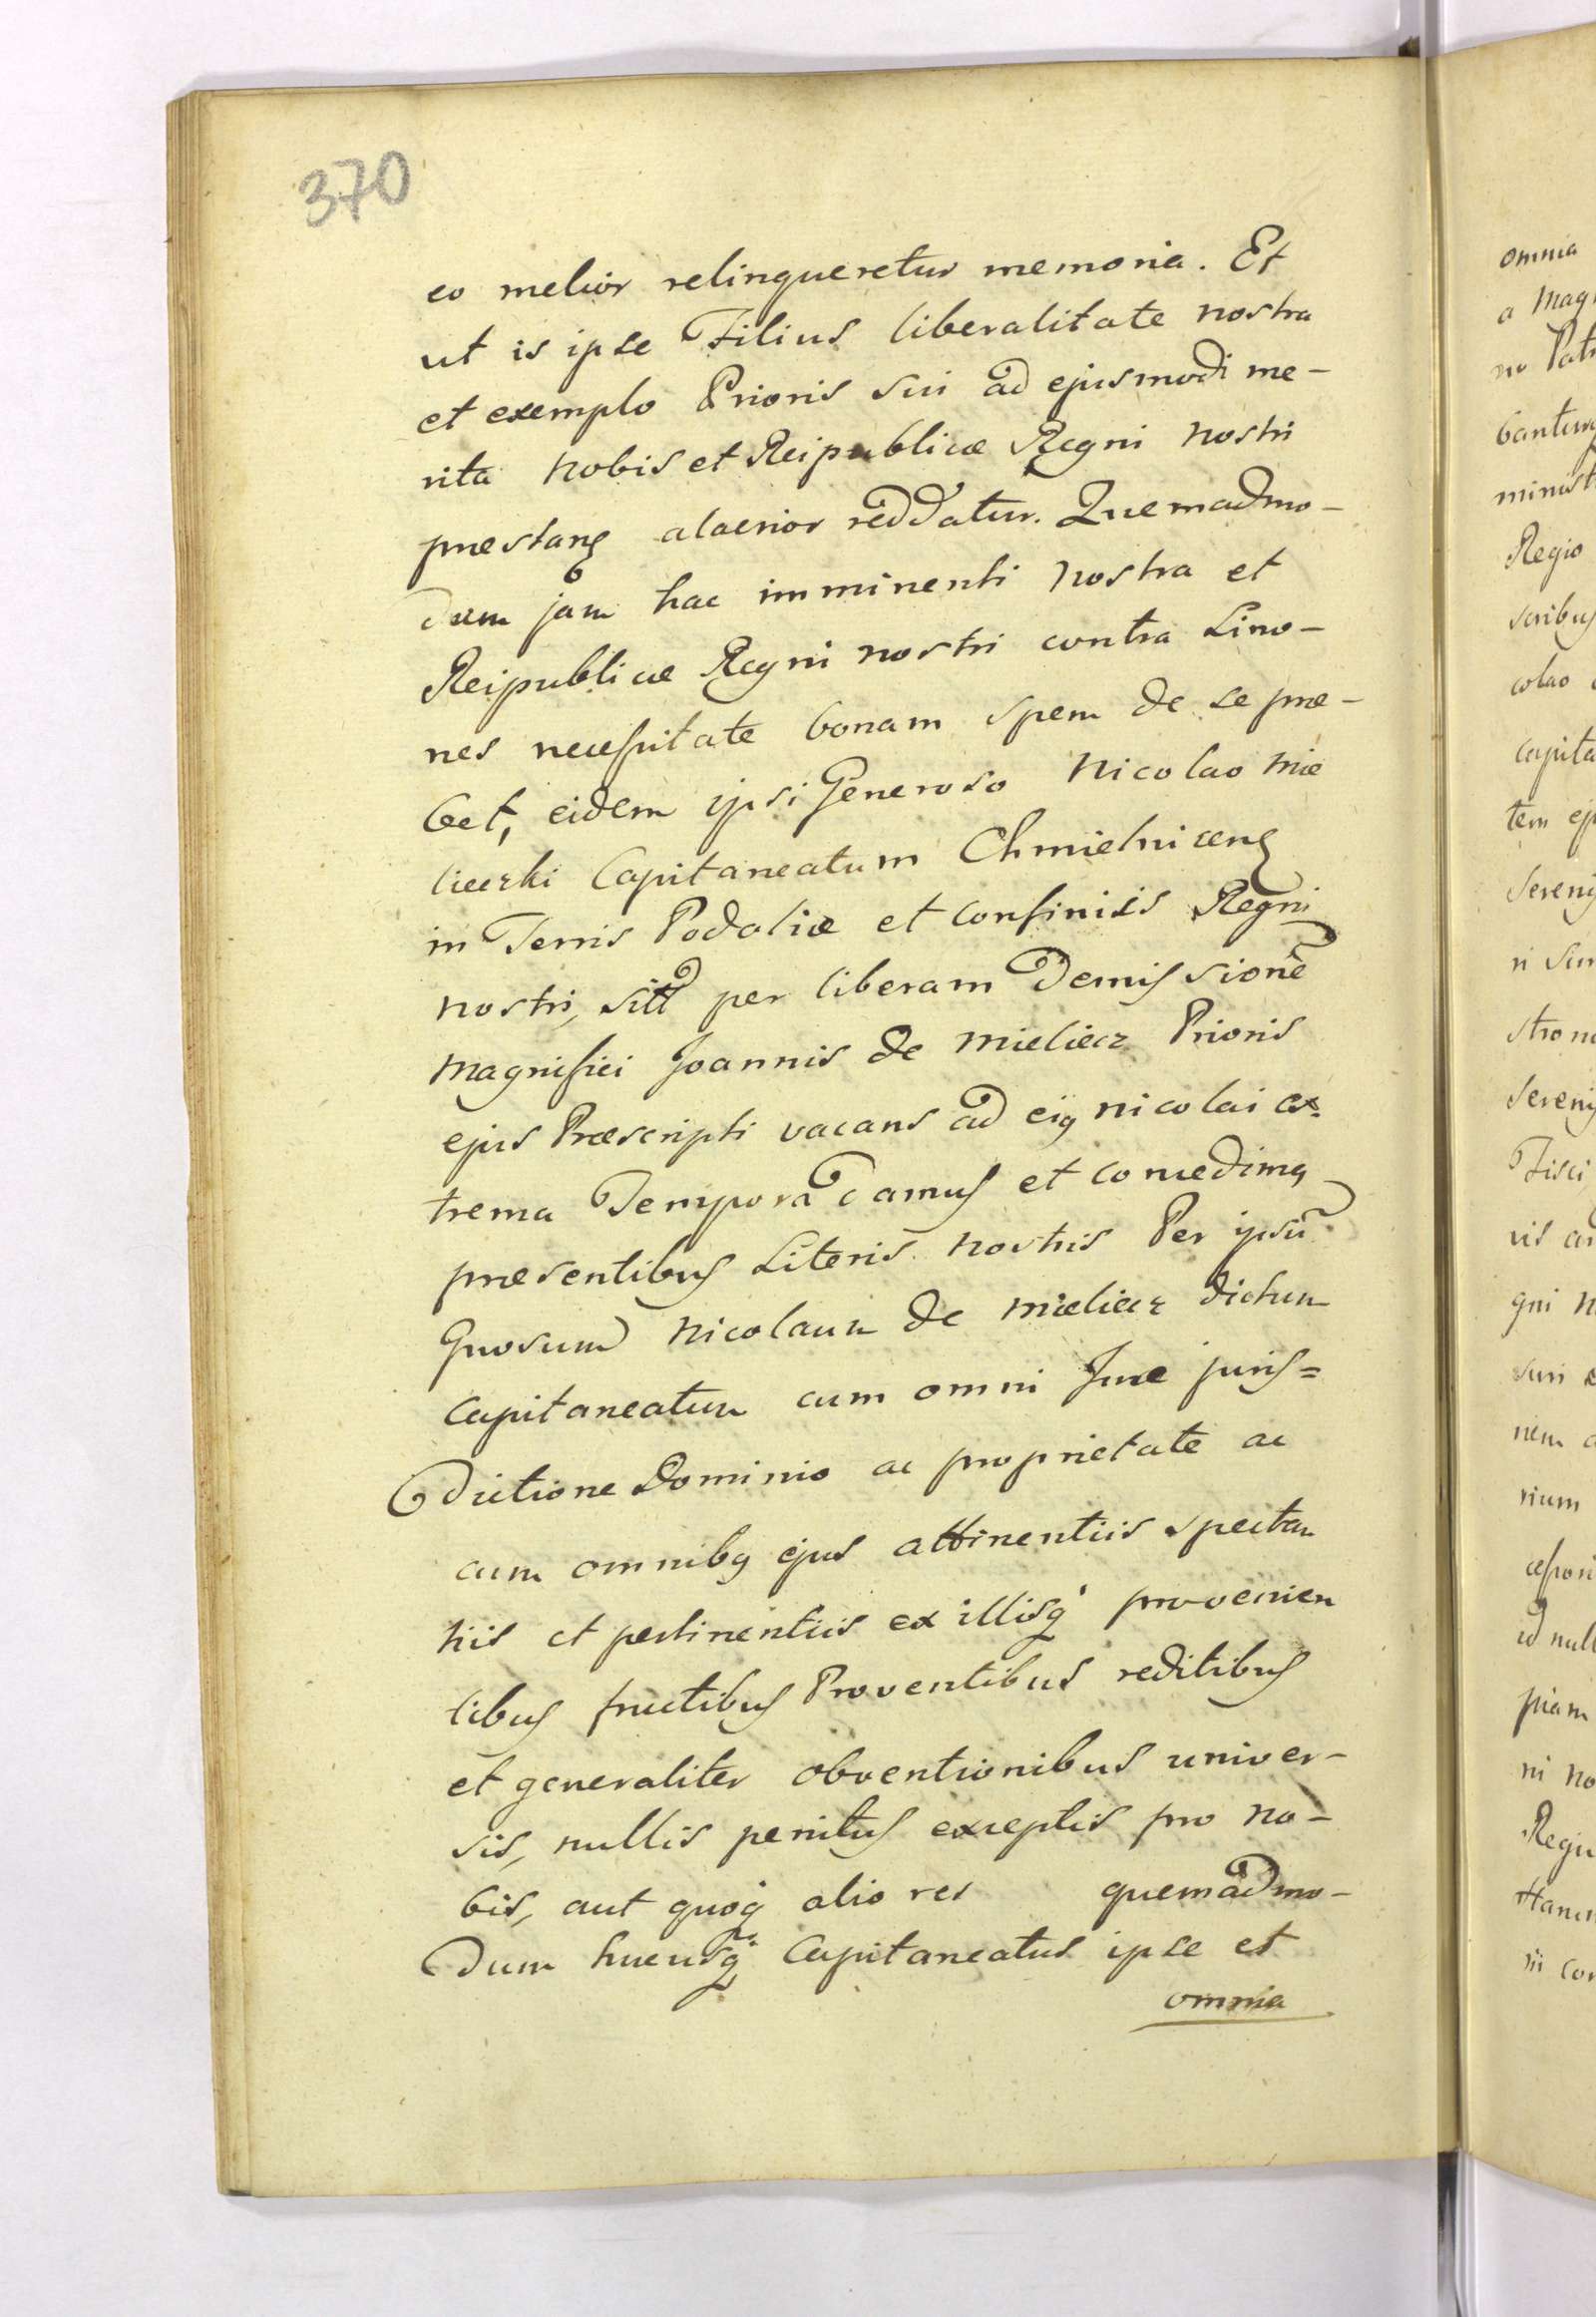 370
eo melior relinqueretur memoria. Et
ut is ipse Filius liberalitate nostra
et exemplo Prioris sui ad ejusmodi me-
rita nobis et Reipublicæ Regni nostri
præstanꝫ alacrior reddatur. Quemadmo-
dum jam hac imminenti nostra et
Reipublicæ Regni nostri contra Livo-
nes necessitate bonam spem de se præ-
bet, eidem ipsi Generoso Nicolao Mie
lieczki Capitaneatum Chmielnicenꝫ
in Terris Podoliæ et confiniis Regni
nostri, per liberam Demissionẽ
Magnifici Joannis de Mieliecz Prioris
ejus Præscripti vacans ad eiꝯ Nicolai ex-
trema Tempora damus et concedimꝯ
præsentibus Literis nostris Per ipsũ
Gnosum Nicolaum de Mieliecz dictum
Capitaneatum cum omni Jure juris=
dictione Dominio ac proprietate ac
cum omnibꝯ ejus attinentiis spectan
tiis et pertinentiis ex illisq̃ provenien
tibus fructibus Proventibus reditibus
et generaliter obventionibus univer-
sis, nullis penitus exceptis pro no-
bis, aut quoq̃ alio res quemadmo-
dum hucusq̃ Capitaneatus ipse et
omnia
omnia
a Mag
no Pat
bantur
minist
Regio
scribus
colao
capita
tem ej
Sereni
ri
strono
Sereni
Fisci
vis
gni n
suri
nem a
rium
cessori
id null
piam
ni no
Regu
Hanc
ii con